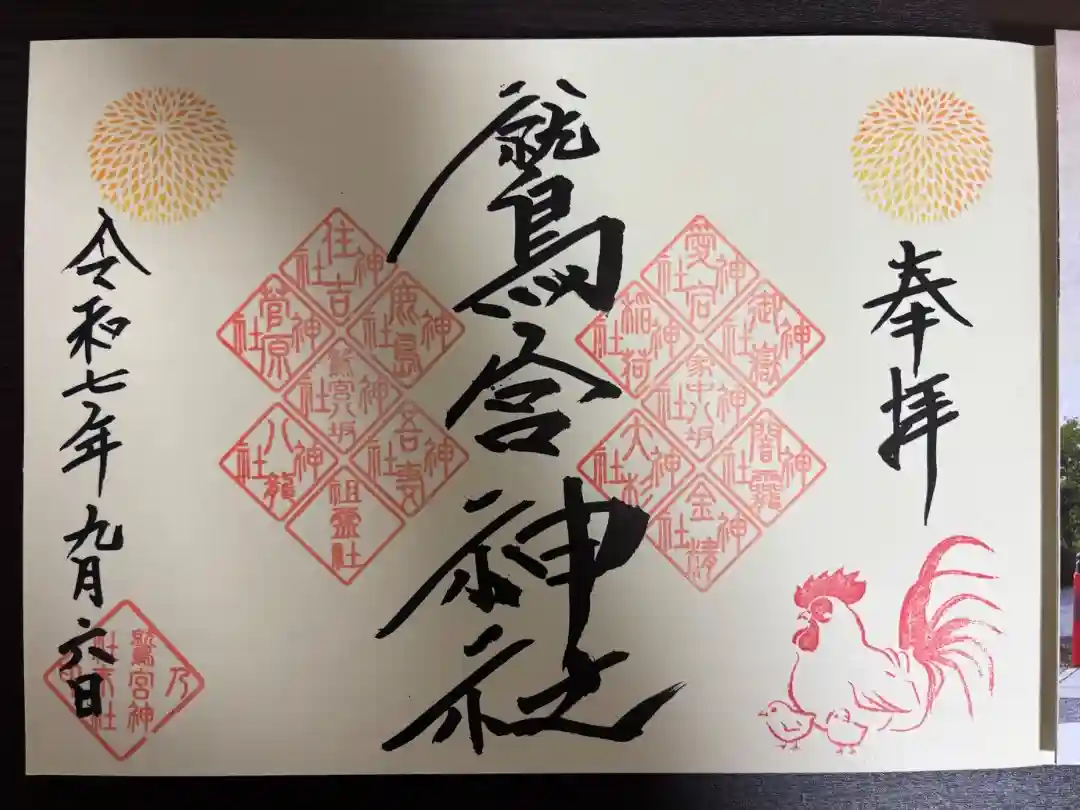 奉拝
愛宕神社
御嶽神社
稲荷神社
家中八坂神社
闇龗神社
大杉神社
金精神社
鷲宮神社
住吉神社
鹿島神社
菅原神社
鷲宮八坂神社
吾妻神社
八龍神社
祖霊社
令和七年九月六日
乃
鷲宮神
社末社